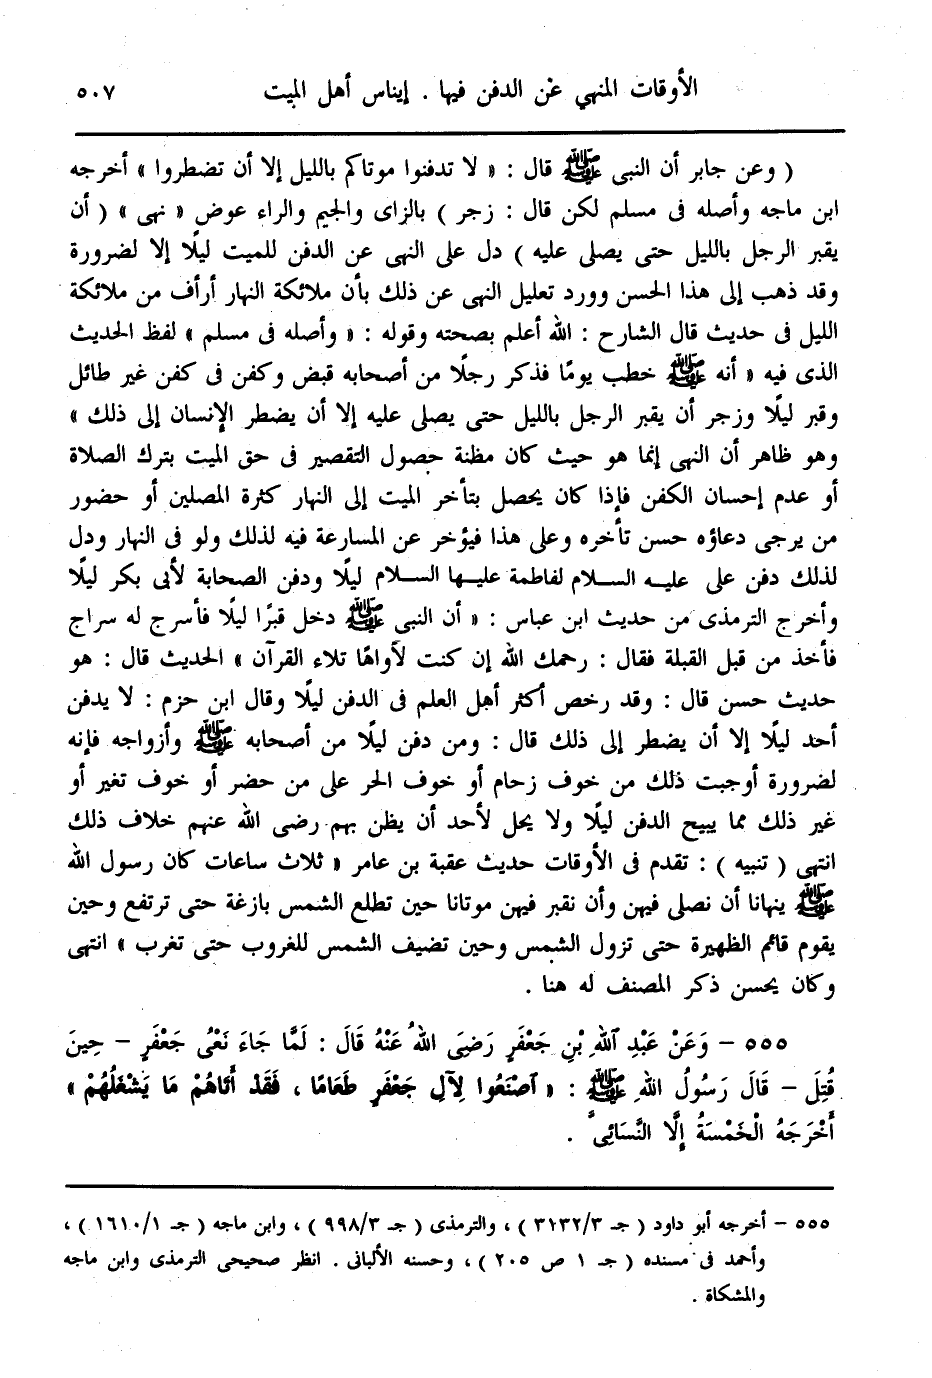 الأوقات المنهي عن الدفن فيها . إيناس أهل الميت ٥٠٧
( وعن جابر أن النبى ﷺ قال : « لا تدفنوا موتاكم بالليل إلا أن تضطروا » أخرجه
ابن ماجه وأصله فى مسلم لكن قال : زجر ) بالزاى والجيم والراء عوض « نهى » ( أن
يقبر الرجل بالليل حتى يصلى عليه ) دل على النهى عن الدفن للميت ليلًا إلا لضرورة
وقد ذهب إلى هذا الحسن وورد تعليل النهى عن ذلك بأن ملائكة النهار أرأف من ملائكة
الليل فى حديث قال الشارح : الله أعلم بصحته وقوله : « وأصله فى مسلم » لفظ الحديث
الذى فيه « أنه ﷺ خطب يومًا فذكر رجلًا من أصحابه قبض وكفن فى كفن غير طائل
وقبر ليلًا وزجر أن يقبر الرجل بالليل حتى يصلى عليه إلا أن يضطر الإنسان إلى ذلك »
وهو ظاهر أن النهى إنما هو حيث كان مظنة حصول التقصير فى حق الميت بترك الصلاة
أو عدم إحسان الكفن فإذا كان يحصل بتأخر الميت إلى النهار كثرة المصلين أو حضور
من يرجى دعاؤه حسن تأخره وعلى هذا فيؤخر عن المسارعة فيه لذلك ولو فى النهار ودل
لذلك دفن على عليه السلام لفاطمة عليها السلام ليلًا ودفن الصحابة لأبى بكر ليلًا
وأخرج الترمذى من حديث ابن عباس : « أن النبى ﷺ دخل قبرًا ليلًا فأسرج له سراج
فأخذ من قبل القبلة فقال : رحمك الله إن كنت لأواهًا تلاء القرآن » الحديث قال : هو
حديث حسن قال : وقد رخص أكثر أهل العلم فى الدفن ليلًا وقال ابن حزم : لا يدفن
أحد ليلًا إلا أن يضطر إلى ذلك قال : ومن دفن ليلًا من أصحابه ﷺ وأزواجه فإنه
لضرورة أوجبت ذلك من خوف زحام أو خوف الحر على من حضر أو خوف تغير أو
غير ذلك مما يبيح الدفن ليلًا ولا يحل لأحد أن يظن بهم رضى الله عنهم خلاف ذلك
انتهى ( تنبيه ) : تقدم فى الأوقات حديث عقبة بن عامر « ثلاث ساعات كان رسول الله
ﷺ ينهانا أن نصلى فيهن وأن نقبر فيهن موتانا حين تطلع الشمس بازغة حتى ترتفع وحين
يقوم قائم الظهيرة حتى تزول الشمس وحين تضيف الشمس للغروب حتى تغرب » انتهى
وكان يحسن ذكر المصنف له هنا .
٥٥٥ – وَعَنْ عَبْدِ اللهِ بْنِ جَعْفَرٍ رَضِىَ اللهُ عَنْهُ قَالَ : لَمَّا جَاءَ نَعْىُ جَعْفَرٍ – حِينَ
قُتِلَ – قَالَ رَسُولُ اللهِ ﷺ : « اصْنَعُوا لِآلِ جَعْفَرٍ طَعَامًا ، فَقَدْ أَتَاهُمْ مَا يَشْغَلُهُمْ »
أَخْرَجَهُ الْخَمْسَةُ إِلَّا النَّسَائِىَّ .
٥٥٥ – أخرجه أبو داود ( جـ ٣١٣٢/٣ ) ، والترمذى ( جـ ٩٩٨/٣ ) ، وابن ماجه ( جـ ١٦١٠/١ ) ،
وأحمد فى مسنده ( جـ ١ ص ٢٠٥ ) ، وحسنه الألبانى . انظر صحيحى الترمذى وابن ماجه
والمشكاة .